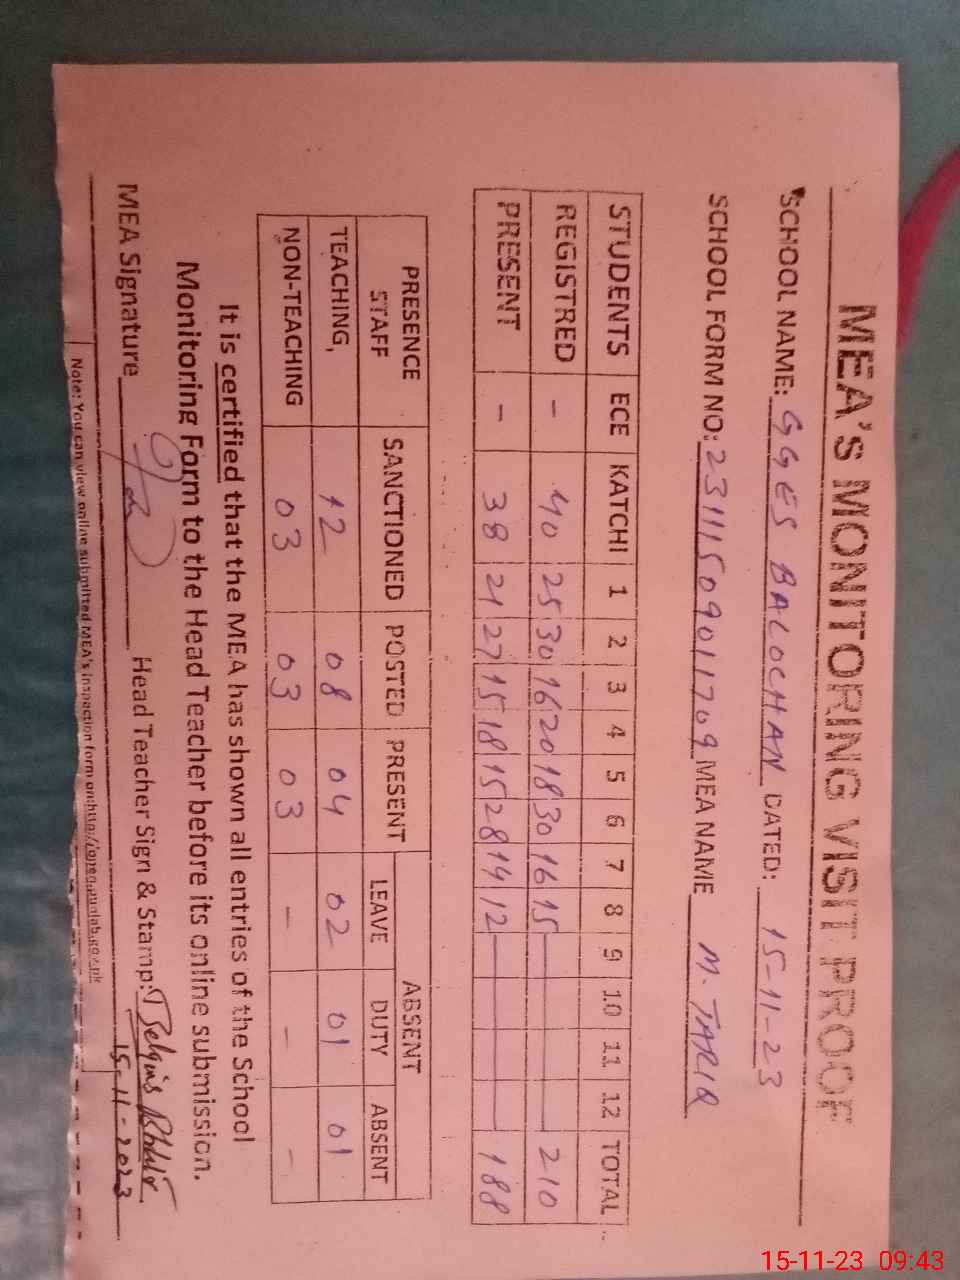 MEA's MONITORING VISIT PROOF
SCHOOL NAME: GGES BALOCHAN DATED: 15-11-23
SCHOOL FORM NO: 23111509011709 MEA NAME M. TARIQ
STUDENTS ECE KATCHI 1 2 3 4 5 6 7 8 9 10 11 12 TOTAL
REGISTRED - 40 25 30 16 20 18 30 16 15 210
PRESENT - 38 21 27 15 18 15 28 14 12 188
PRESENCE STAFF SANCTIONED POSTED PRESENT ABSENT
LEAVE DUTY ABSENT
TEACHING, 12 08 04 02 01 01
NON-TEACHING 03 03 03 - - -
It is certified that the MEA has shown all entries of the School
Monitoring Form to the Head Teacher before its online submission.
MEA Signature Head Teacher Sign & Stamp:
15-11-2023
Note: You can view online submitted MEA's inspection form on:http://open.punjab.gov.pk
15-11-23 09:43